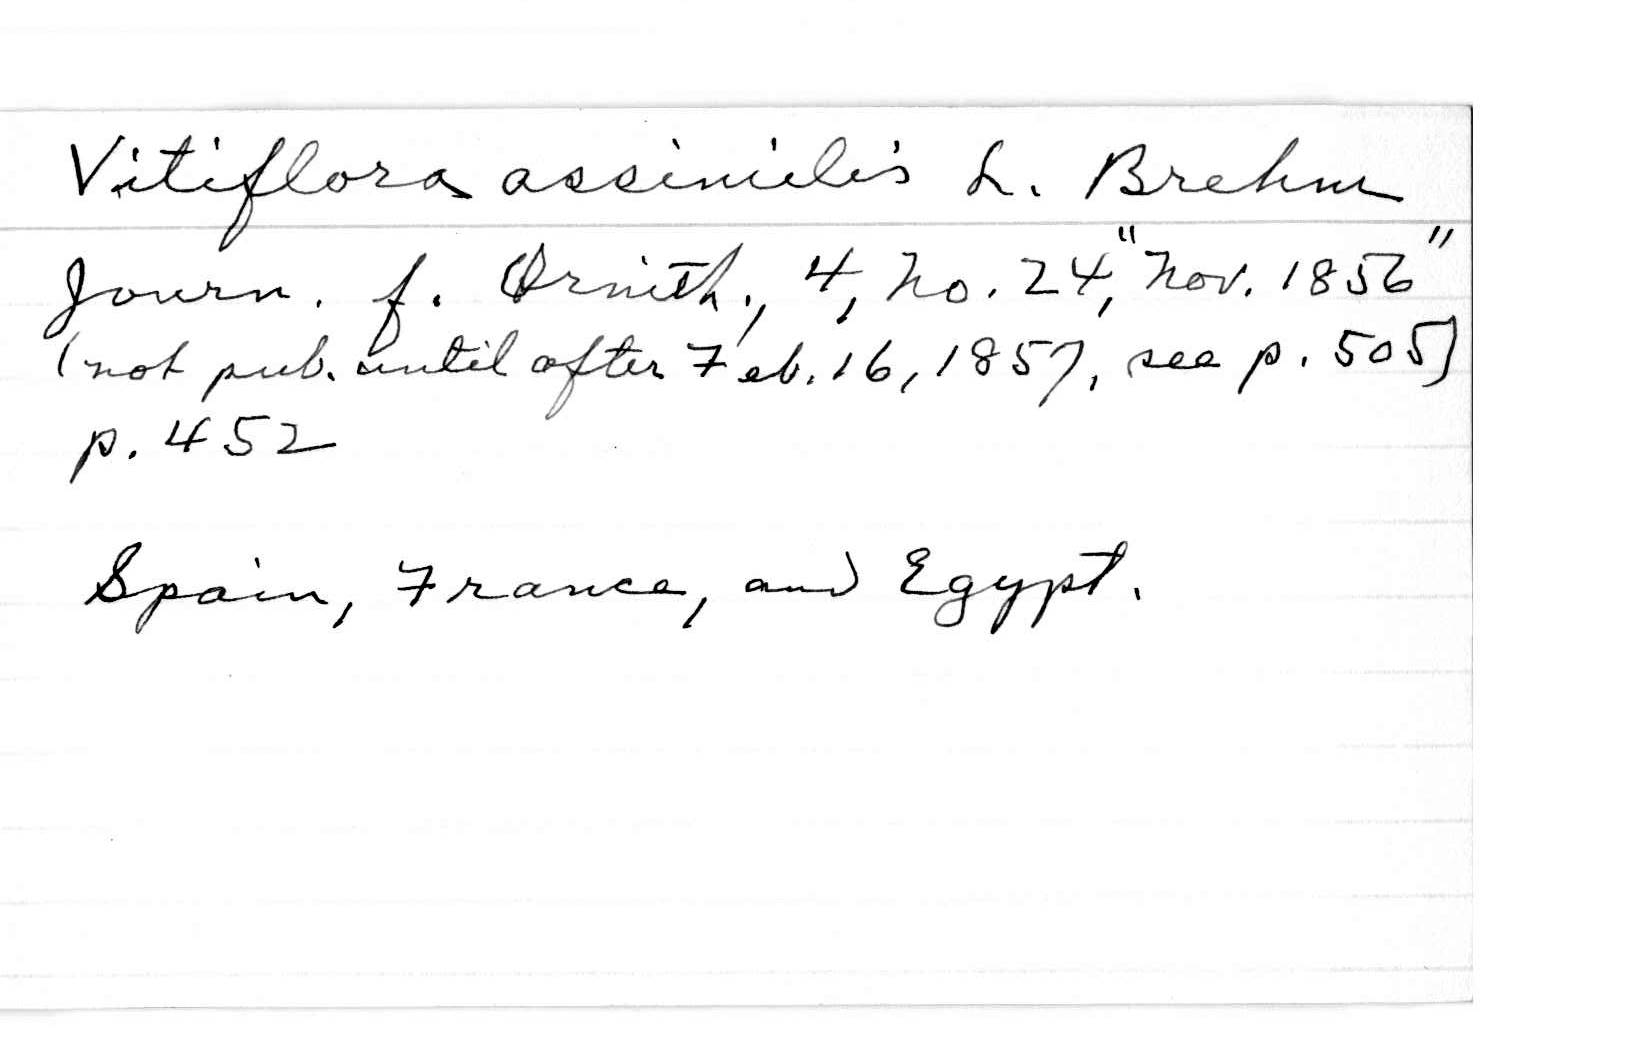 Vitiflora assimilis L. Brehm
Journ. f. Ornith., 4, no. 24, "Nov. 1856"
(not pub. until after Feb. 16, 1857, see p. 505)
p. 452
Spain, France, and Egypt.